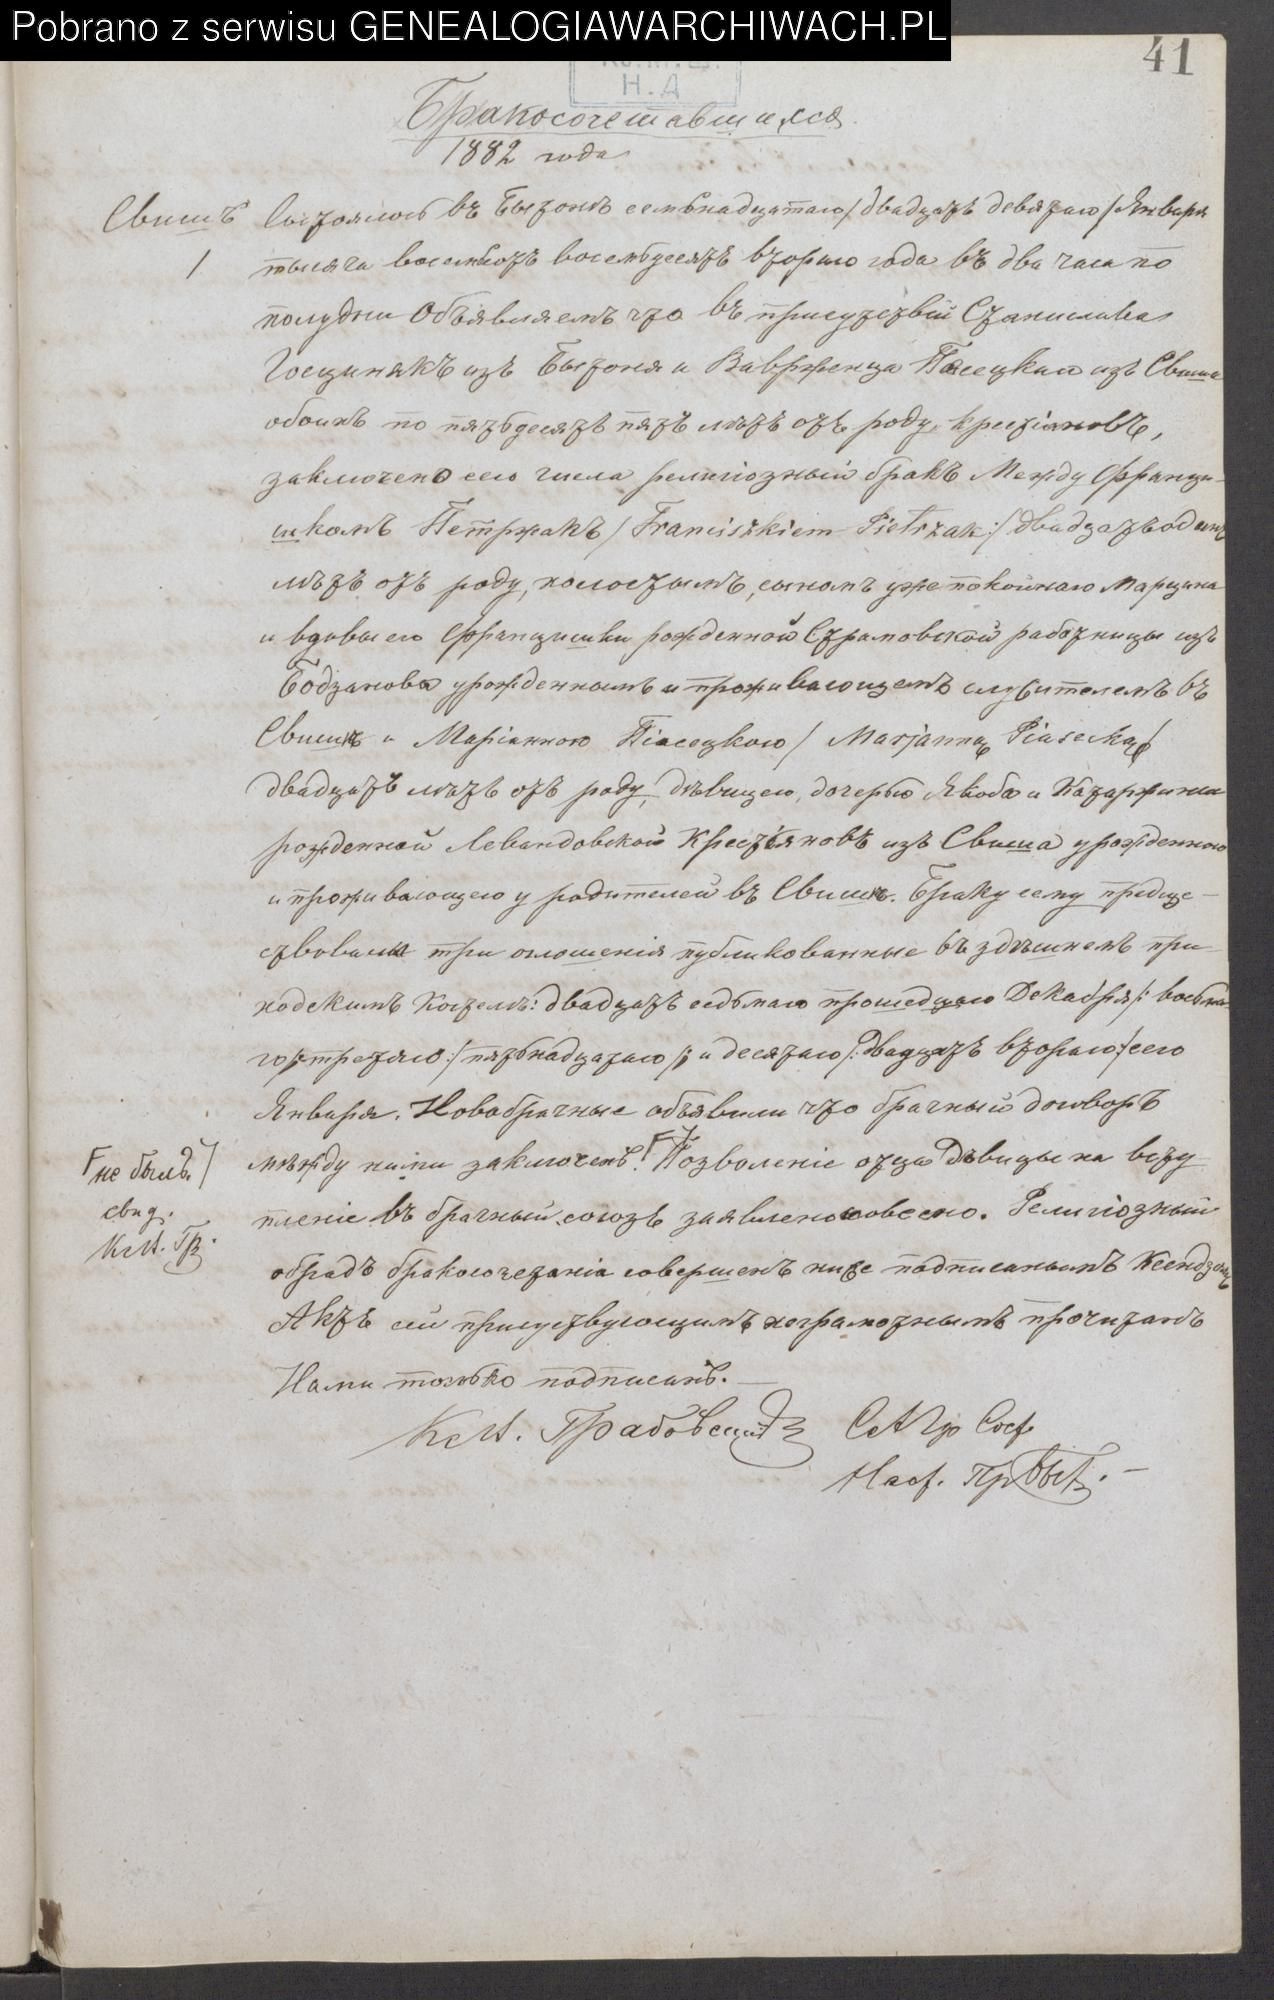 Pobrano z serwisu GENEALOGIAWARCHIWACH.PL
41
Н.Д
Бракосочетавшихся
1882 года
Свишъ
1
Состоялось въ Бытонѣ семьнадцатаго /двадцать девятаго/ Января
тысяча восемьсотъ восемьдесятъ втораго года въ два часа по
полудни Объявляемъ что въ присутствіи Станислава
Госцинякъ изъ Бытоня и Ваврженца Пясецкаго изъ Свиша
обоихъ по пятьдесятъ пять лѣтъ отъ роду, крестіановъ,
заключено сего числа религіозный бракъ Между Францы-
шкомъ Петржакъ / Franciszkiem Pietrzak:/ двадцать одинъ
лѣтъ отъ роду, холостымъ, сыномъ уже покойнаго Марцина
и вдовы его Францишки рожденной Страмовской работницы изъ
Бодзанова урожденнымъ и проживающемъ служителемъ въ
Свишѣ и Маріанною Піасецкою / Marjanną Piasecką/
двадцать лѣтъ отъ роду, дѣвицею, дочерью Якоба и Катаржины
рожденной Левандовской Крестіяновъ изъ Свиша урожденною
и проживающею у родителей въ Свишѣ. Браку сему предше-
ствовали три оглошенія публикованные въ здѣшнемъ при-
ходскимъ Костелѣ: двадцать седьмаго прошедшаго Декабря/: восьма-
го/третяго:/ пятьнадцатаго/ и десятаго /:двадцать втораго:/ сего
Января. Новобрачные объявили что брачный договоръ
мѣжду ними заключенъ. Позволеніе отца Дѣвицы на всту-
пленіе въ брачный союзъ заявлено словесно. Религіозный
обрадъ бракосочетанія совершенъ ниже подписанымъ Ксендзомъ
Актъ сей присутствующимъ неграмотнымъ прочитанъ
Нами только подписанъ.
не былъ
свид.
Кс М. Гр.
Кс М. Грабовскій
Наст. Пр Быт.